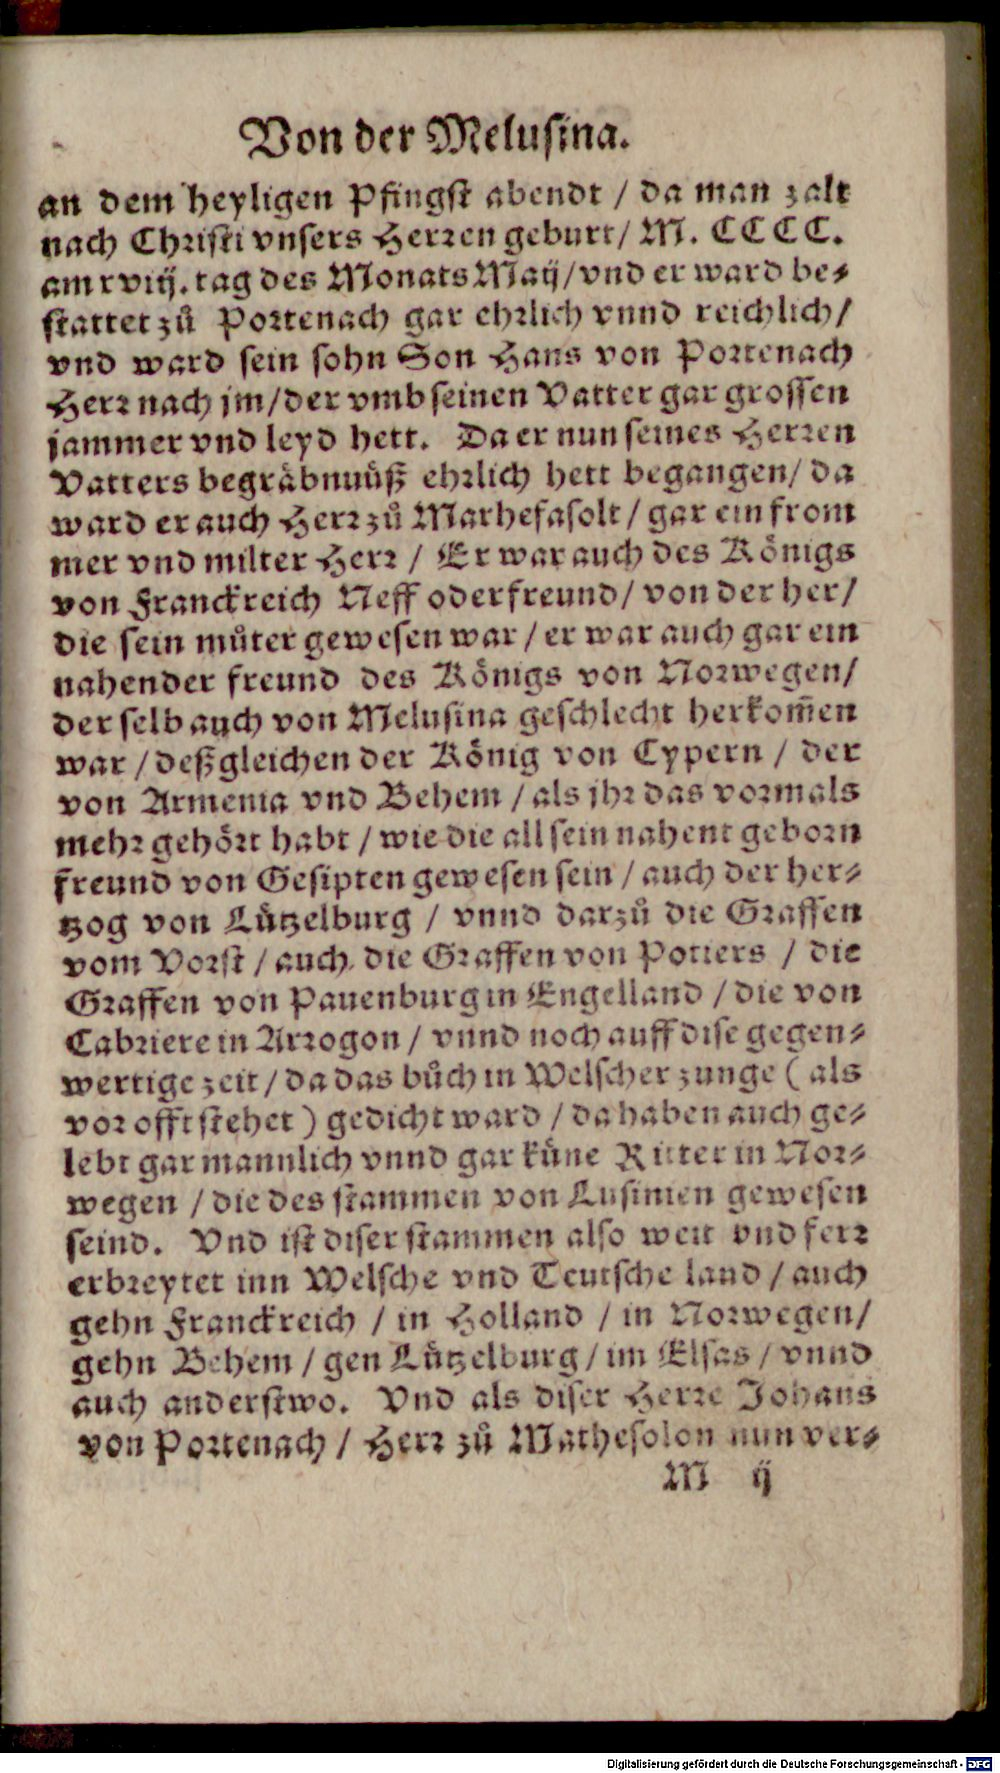 Von der Melusina.
an dem heyligen Pfingst abendt / da man zalt
nach Christi vnsers Herren geburt / M. CCCC.
am xviij. tag des Monats Maij / vnd er ward be-
stattet zů Portenach gar ehrlich vnnd reichlich /
vnd ward sein sohn Son Hans von Portenach
Herr nach jm / der vmb seinen Vatter gar grossen
jammer vnd leyd hett. Da er nun seines Herren
Vatters begräbnuüß ehrlich hett begangen / da
ward er auch Herr zů Marhefasolt / gar ein from
mer vnd milter Herr / Er war auch des Königs
von Franckreich Neff oder freund / von der her /
die sein můter gewesen war / er war auch gar ein
nahender freund des Königs von Norwegen /
der selb auch von Melusina geschlecht herkom̃en
war / deßgleichen der König von Cypern / der
von Armenia vnd Behem / als jhr das vormals
mehr gehört habt / wie die all sein nahent geborn
freund von Gesipten gewesen sein / auch der her-
tzog von Lützelburg / vnnd darzů die Graffen
vom Vorst / auch die Graffen von Potiers / die
Graffen von Pauenburg in Engelland / die von
Cabriere in Arrogon / vnnd noch auff dise gegen-
wertige zeit / da das bůch in Welscher zunge ( als
vor offt stehet ) gedicht ward / da haben auch ge-
lebt gar mannlich vnnd gar küne Ritter in Nor-
wegen / die des stammen von Lusinien gewesen
seind. Vnd ist diser stammen also weit vnd ferr
erbreytet inn Welsche vnd Teutsche land / auch
gehn Franckreich / in Holland / in Norwegen /
gehn Behem / gen Lützelburg / im Elsas / vnnd
auch anderstwo. Vnd als diser Herre Johans
von Portenach / Herr zů Mathesolon nun ver-
M ij
Digitalisierung gefördert durch die Deutsche Forschungsgemeinschaft - DFG